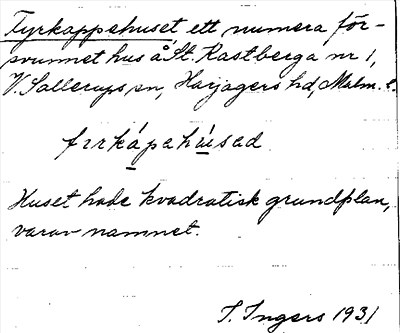 Fyrkappehuset ett numera för-
svunnet hus å St. Rastberga nr 1,
V. Sallerups sn, Harjagers hd, Malm. l.
firkápahúsad
Huset hade kvadratisk grundplan,
varav namnet.
I. Ingers 1931